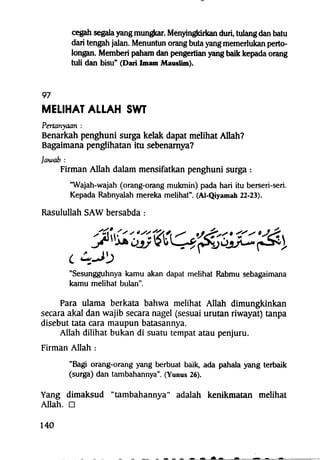 cegah segala yang mungkar. Menyingkirkan duri, tulang dan batu
dari tengah jalan. Menuntun orang buta yang memerlukan perto-
longan. Memberi paham dan pengertian yang baik kepada orang
tuli dan bisu" (Dari Imam Mauslim).
97
MELIHAT ALLAH SWT
Pertanyaan :
Benarkah penghuni surga kelak dapat melihat Allah?
Bagaimana penglihatan itu sebenarnya?
Jawab :
Firman Allah dalam mensifatkan penghuni surga :
"Wajah-wajah (orang-orang mukmin) pada hari itu berseri-seri.
Kepada Rabnyalah mereka melihat". (Al-Qiyamah 22-23).
Rasulullah SAW bersabda :
"Sesungguhnya kamu akan dapat melihat Rabmu sebagaimana
kamu melihat bulan".
Para ulama berkata bahwa melihat Allah dimungkinkan
secara akal dan wajib secara nagel (sesuai urutan riwayat) tanpa
disebut tata cara maupun batasannya.
Allah dilihat bukan di suatu tempat atau penjuru.
Firman Allah :
"Bagi orang-orang yang berbuat baik, ada pahala yang terbaik
(surga) dan tambahannya". (Yunus 26).
Yang dimaksud "tambahannya" adalah kenikmatan melihat
Allah. □
140